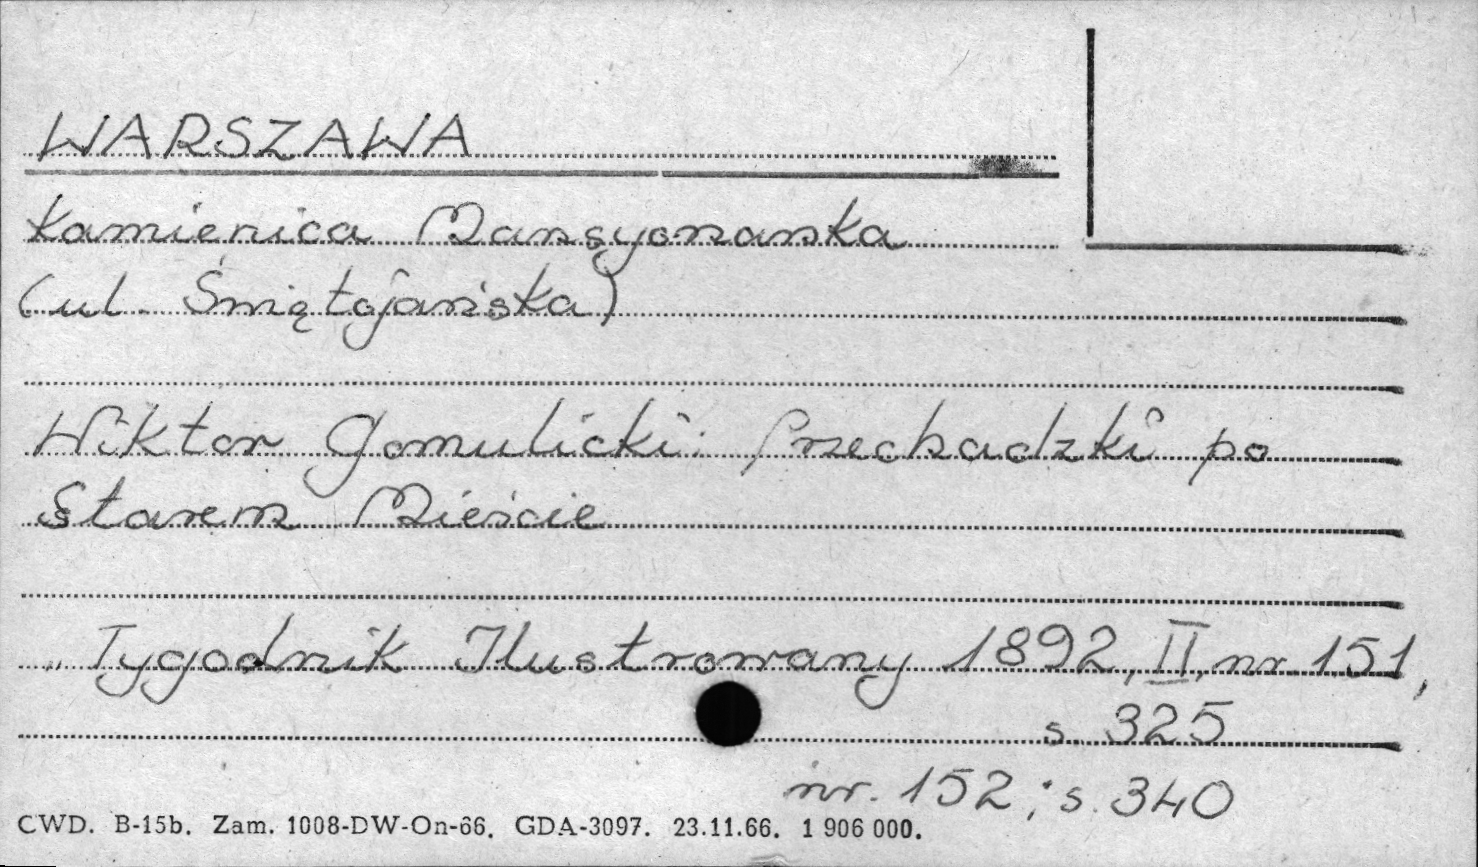 WARSZAWA
Kamienica Mansyonarska
(ul. Świętojańska)
Wiktor Gomulicki: Przechadzki po
Starem Mieście
„Tygodnik Ilustrowany 1892, II, nr 151,
s. 325
nr. 152; s. 340
CWD. B-15b. Zam. 1008-DW-On-66. GDA-3097. 23.11.66. 1 906 000.